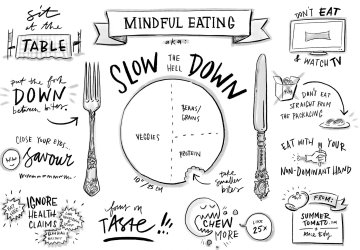 MINDFUL EATING
aka:
SLOW THE HELL DOWN
sit
at the
TABLE
put the fork
DOWN
between bites.
CLOSE YOUR EYES...
savour
IGNORE
HEALTH
CLAIMS
VEGGIES
BEANS/
GRAINS
PROTEIN
take
smaller
bites
focus on
TASTE!!!
CHEW
MORE
LIKE
25x
DON'T EAT
& WATCH TV
DON'T EAT
STRAIGHT FROM
THE PACKAGING
EAT WITH YOUR
NON-DOMINANT HAND
FROM:
SUMMER
TOMATO.COM